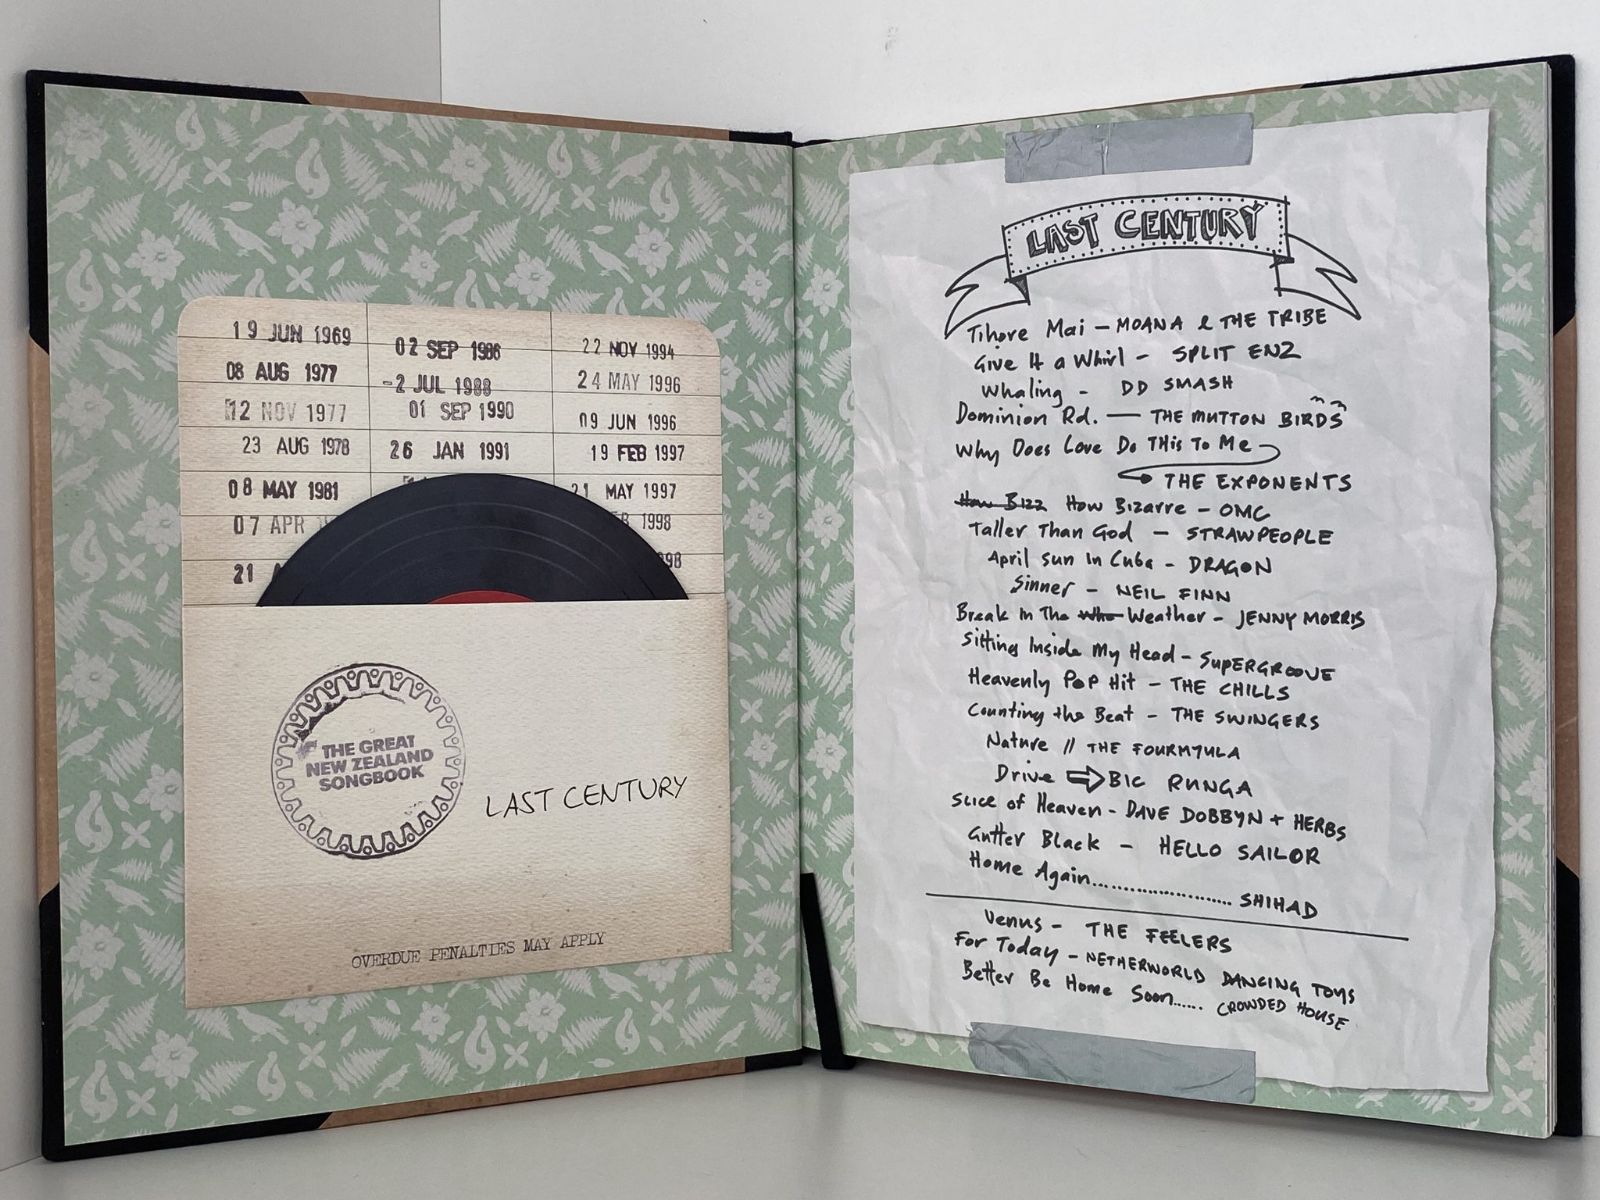 19 JUN 1969
08 AUG 1977
12 NOV 1977
23 AUG 1978
08 MAY 1981
07 APR
21
02 SEP 1986
-2 JUL 1988
01 SEP 1990
26 JAN 1991
22 NOV 1994
24 MAY 1996
09 JUN 1996
19 FEB 1997
21 MAY 1997
1998
98
THE GREAT
NEW ZEALAND
SONGBOOK
LAST CENTURY
OVERDUE PENALTIES MAY APPLY
LAST CENTURY
Tihore Mai – MOANA & THE TRIBE
Give It a Whirl – SPLIT ENZ
Whaling – DD SMASH
Dominion Rd. — THE MUTTON BIRDS
Why Does Love Do THis To Me
THE EXPONENTS
How Bizz How Bizarre – OMC
Taller Than God – STRAWPEOPLE
April Sun In Cuba – DRAGON
Sinner – NEIL FINN
Break In The Whe Weather – JENNY MORRIS
Sitting Inside My Head – SUPERGROOVE
Heavenly Pop Hit – THE CHILLS
Counting the Beat – THE SWINGERS
Nature // THE FOURMYULA
Drive ⇨ BIC RUNGA
Slice of Heaven – DAVE DOBBYN + HERBS
Gutter Black – HELLO SAILOR
Home Again.................... SHIHAD
Venus – THE FEELERS
For Today – NETHERWORLD DANCING TOYS
Better Be Home Soon...... CROWDED HOUSE